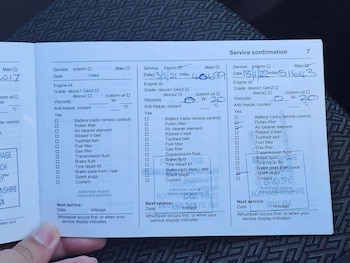 Service confirmation 7
Main ☐
Service Interim ☐ Main ☐
Date miles
Engine oil
Grade: dexos1 Gen2 ☐
dexos2 ☐ custom oil ☐
Viscosity: W-
Anti freeze, coolant °C
Yes
☐ Battery (radio remote control)
☐ Pollen filter
☐ Air cleaner element
☐ Ribbed V-belt
☐ Toothed belt
☐ Fuel filter
☐ Gas filter
☐ Transmission fluid
☐ Brake fluid
☐ Tyre repair kit
☐ Brake pads front / rear
☐ Spark plugs
☐ Coolant
Next service:
Date mileage
Whichever occurs first, or when your
service display indicates.
Service Interim Main
Date 3/5/21 miles
Engine oil
Grade: dexos1 Gen2
dexos2 custom oil
Viscosity: 0 W- 20
Anti freeze, coolant °C
Yes
Battery (radio remote control)
Pollen filter
Air cleaner element
Ribbed V-belt
Toothed belt
Fuel filter
Gas filter
Transmission fluid
Brake fluid
Tyre repair kit
Brake pads front / rear
Spark plugs
Coolant
Next service:
Date mileage
Whichever occurs first, or when your
service display indicates.
Service Interim Main
Date miles 51643
Engine oil
Grade: dexos1 Gen2
dexos2 custom oil
Viscosity: 0 W- 20
Anti freeze, coolant °C
Yes
Battery (radio remote control)
Pollen filter
Air cleaner element
Ribbed V-belt
Toothed belt
Fuel filter
Gas filter
Transmission fluid
Brake fluid
Tyre repair kit
Brake pads front / rear
Spark plugs
Coolant
Next service:
Date mileage
Whichever occurs first, or when your
service display indicates.